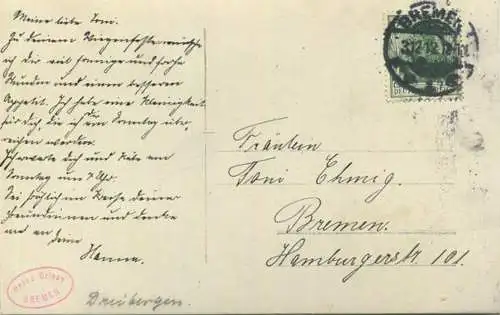 Meine liebe Toni.
Zu deinem Wiegenfeste wünsche
ich dir viel sonnige und frohe
Stunden und einen besseren
Appetit. Ich habe eine Kleinigkeit
für dich, die ich dir Sonntag über-
reichen werde.
Ich erwarte dich und Käte am
Sonntag um Uhr.
Sei fröhlich im Kreise deiner
Freundinnen und denke
mal an deine
Hanna.
BREMEN
Fräulein
Toni Ehmig.
Bremen.
Hamburgerstr. 101.
BREMEN
Dreibergen.